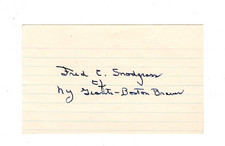 Fred C. Snodgrass
cf
Ny Giants-Boston Braves